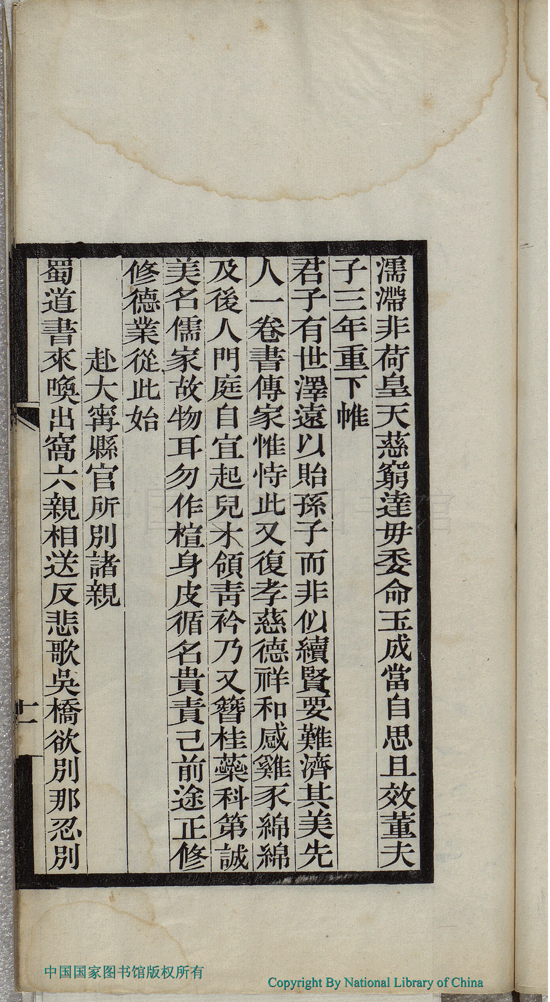 濡滯非荷皇天慈窮達毋委命玉成當自思且效董夫
子三年重下帷
君子有世澤遠以貽孫子而非似續賢要難濟其美先
人一卷書傳家惟恃此又復孝慈德祥和感雞豕綿綿
及後人門庭自宜起兒才領青衿乃又簪桂蘂科第誠
美名儒家故物耳勿作楦身皮循名貴責己前途正修
修德業從此始
赴大甯縣官所別諸親
蜀道書來喚出窩六親相送反悲歌吳橋欲別那忍別
十一
中国国家图书馆版权所有
Copyright By National Library of China